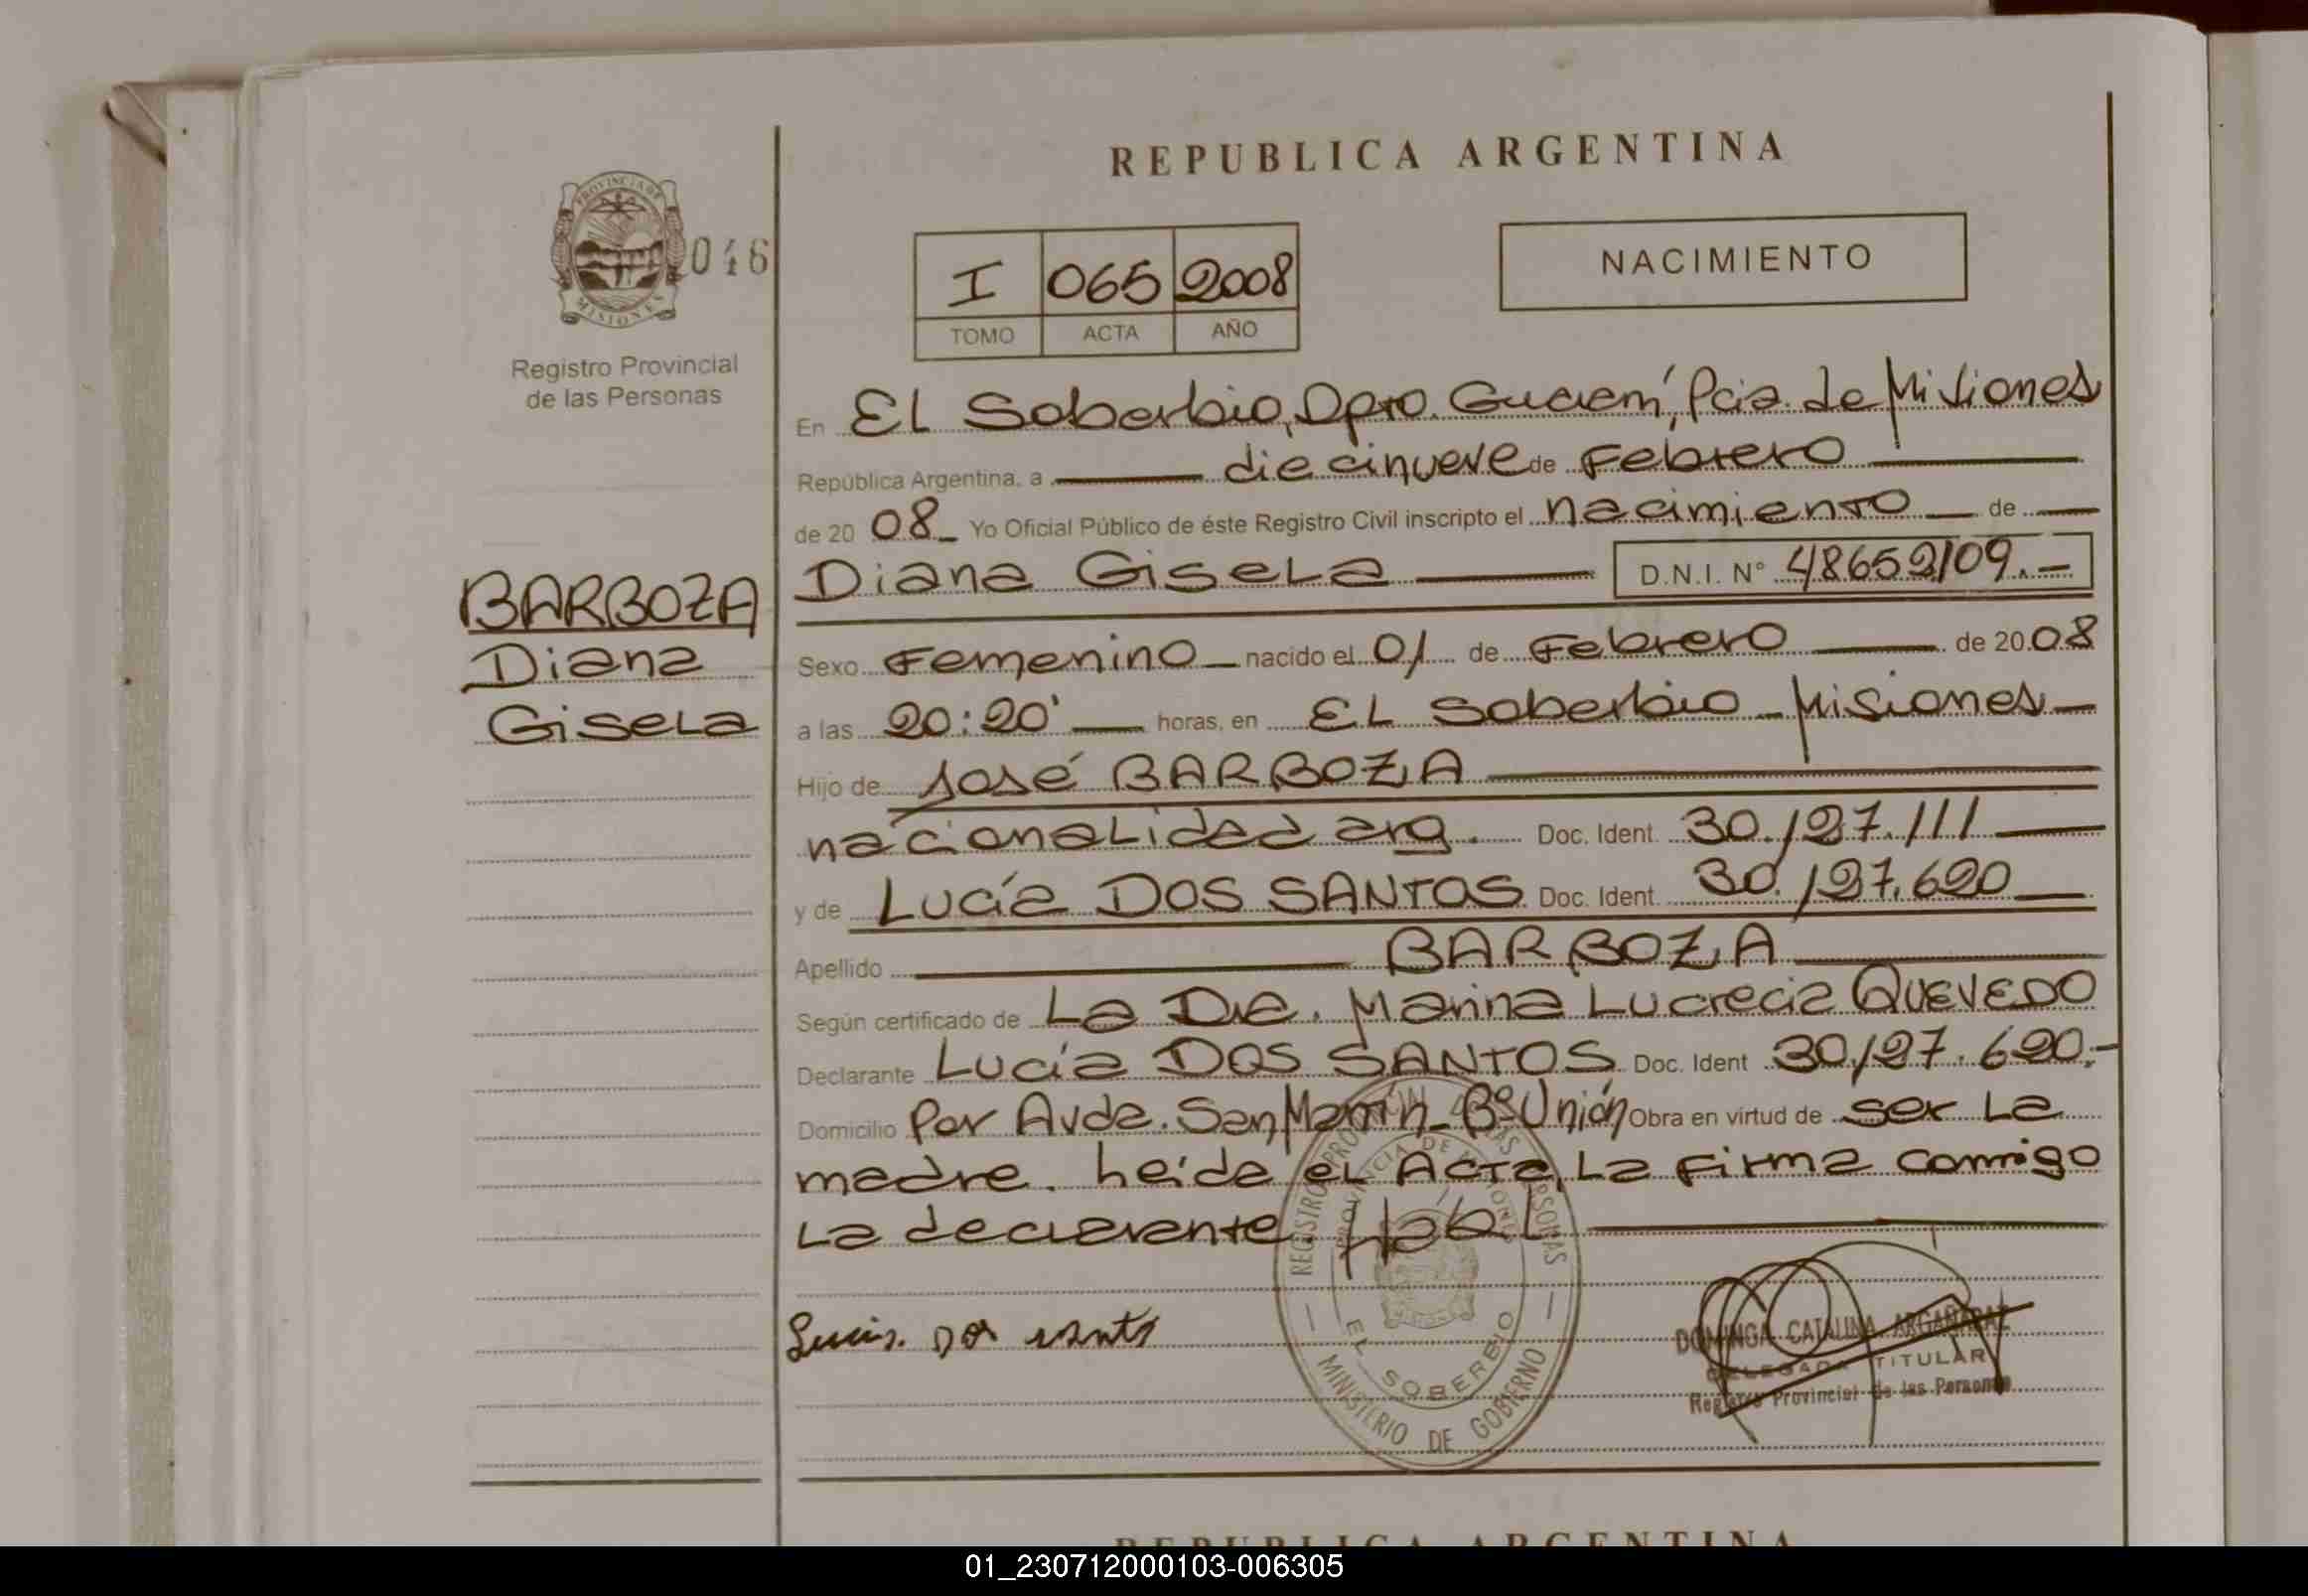 REPUBLICA ARGENTINA
PROVINCIA DE
MISIONES
046
I 065 2008
TOMO ACTA AÑO
NACIMIENTO
Registro Provincial
de las Personas
En EL Soberbio, Dpto. Guaraní, Pcia. de Misiones
República Argentina, a diecinueve de Febrero
de 20 08 Yo Oficial Público de éste Registro Civil inscripto el nacimiento de
Diana Gisela D.N.I. N° 48652109.-
BARBOZA
Diana
Gisela
Sexo Femenino nacido el 01 de Febrero de 20 08
a las 20:20' horas, en EL Soberbio - Misiones
Hijo de José BARBOZA
nacionalidad arg. Doc. Ident. 30.127.111
y de Lucía DOS SANTOS Doc. Ident. 30.127.620
Apellido BARBOZA
Según certificado de La Dra. Marina Lucrecia QUEVEDO
Declarante Lucía DOS SANTOS Doc. Ident 30.127.620.-
Domicilio Por Avda. San Martín - B° Unión Obra en virtud de ser La
madre. Leída el Acta, La firma conmigo
La declarante.
REGISTRO PROVINCIAL DE LAS PERSONAS
PROVINCIA DE MISIONES
EL SOBERBIO
MINISTERIO DE GOBIERNO
DOMINGA CATALINA ARGAÑARAZ
DELEGADA TITULAR
Registro Provincial de las Personas
REPUBLICA ARGENTINA
01_230712000103-006305